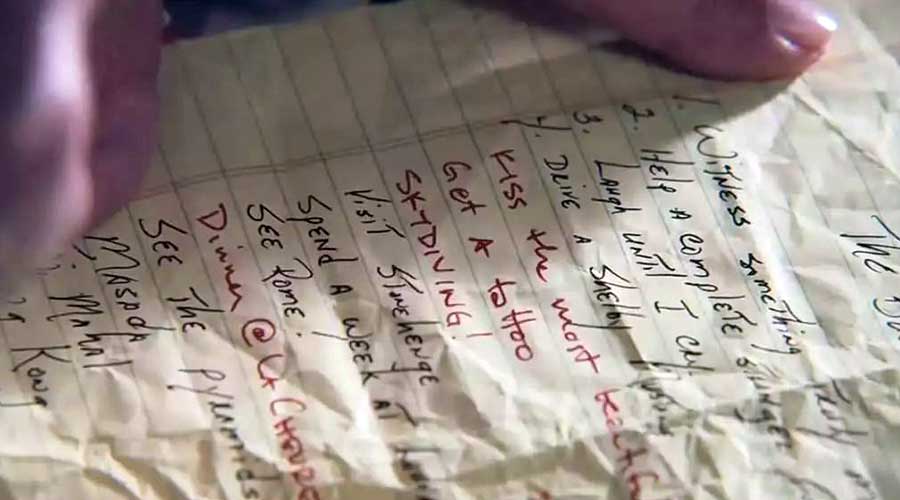 The
1. Witness something Truly
2. Help A complete stranger
3. Laugh until I cry
4. Drive A Shelby
Kiss the most
Get A tattoo
SKYDIVING!
Visit Stonehenge
Spend A week At
See Rome.
Dinner @
See The Pyramids
Masada
Mahal
Kong